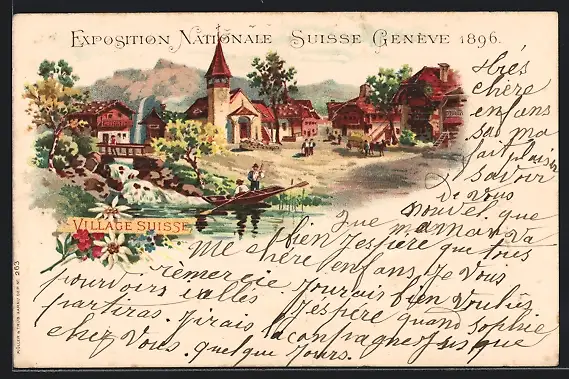 EXPOSITION NATIONALE SUISSE GENÈVE 1896.
très
chère
enfans
sa ma
fait plaisir
savoir
de vous
nouvel que
Que maman va
VILLAGE SUISSE
bien j'espère que tous
Me chère enfans, Je Vous
remercie Jourais bien Voulus
pourvoirs
partiras. J'irais
j'espère quand sophie
chez Vous. quelque Jours.
jusque
MÜLLER & TRÜB AARAU 263